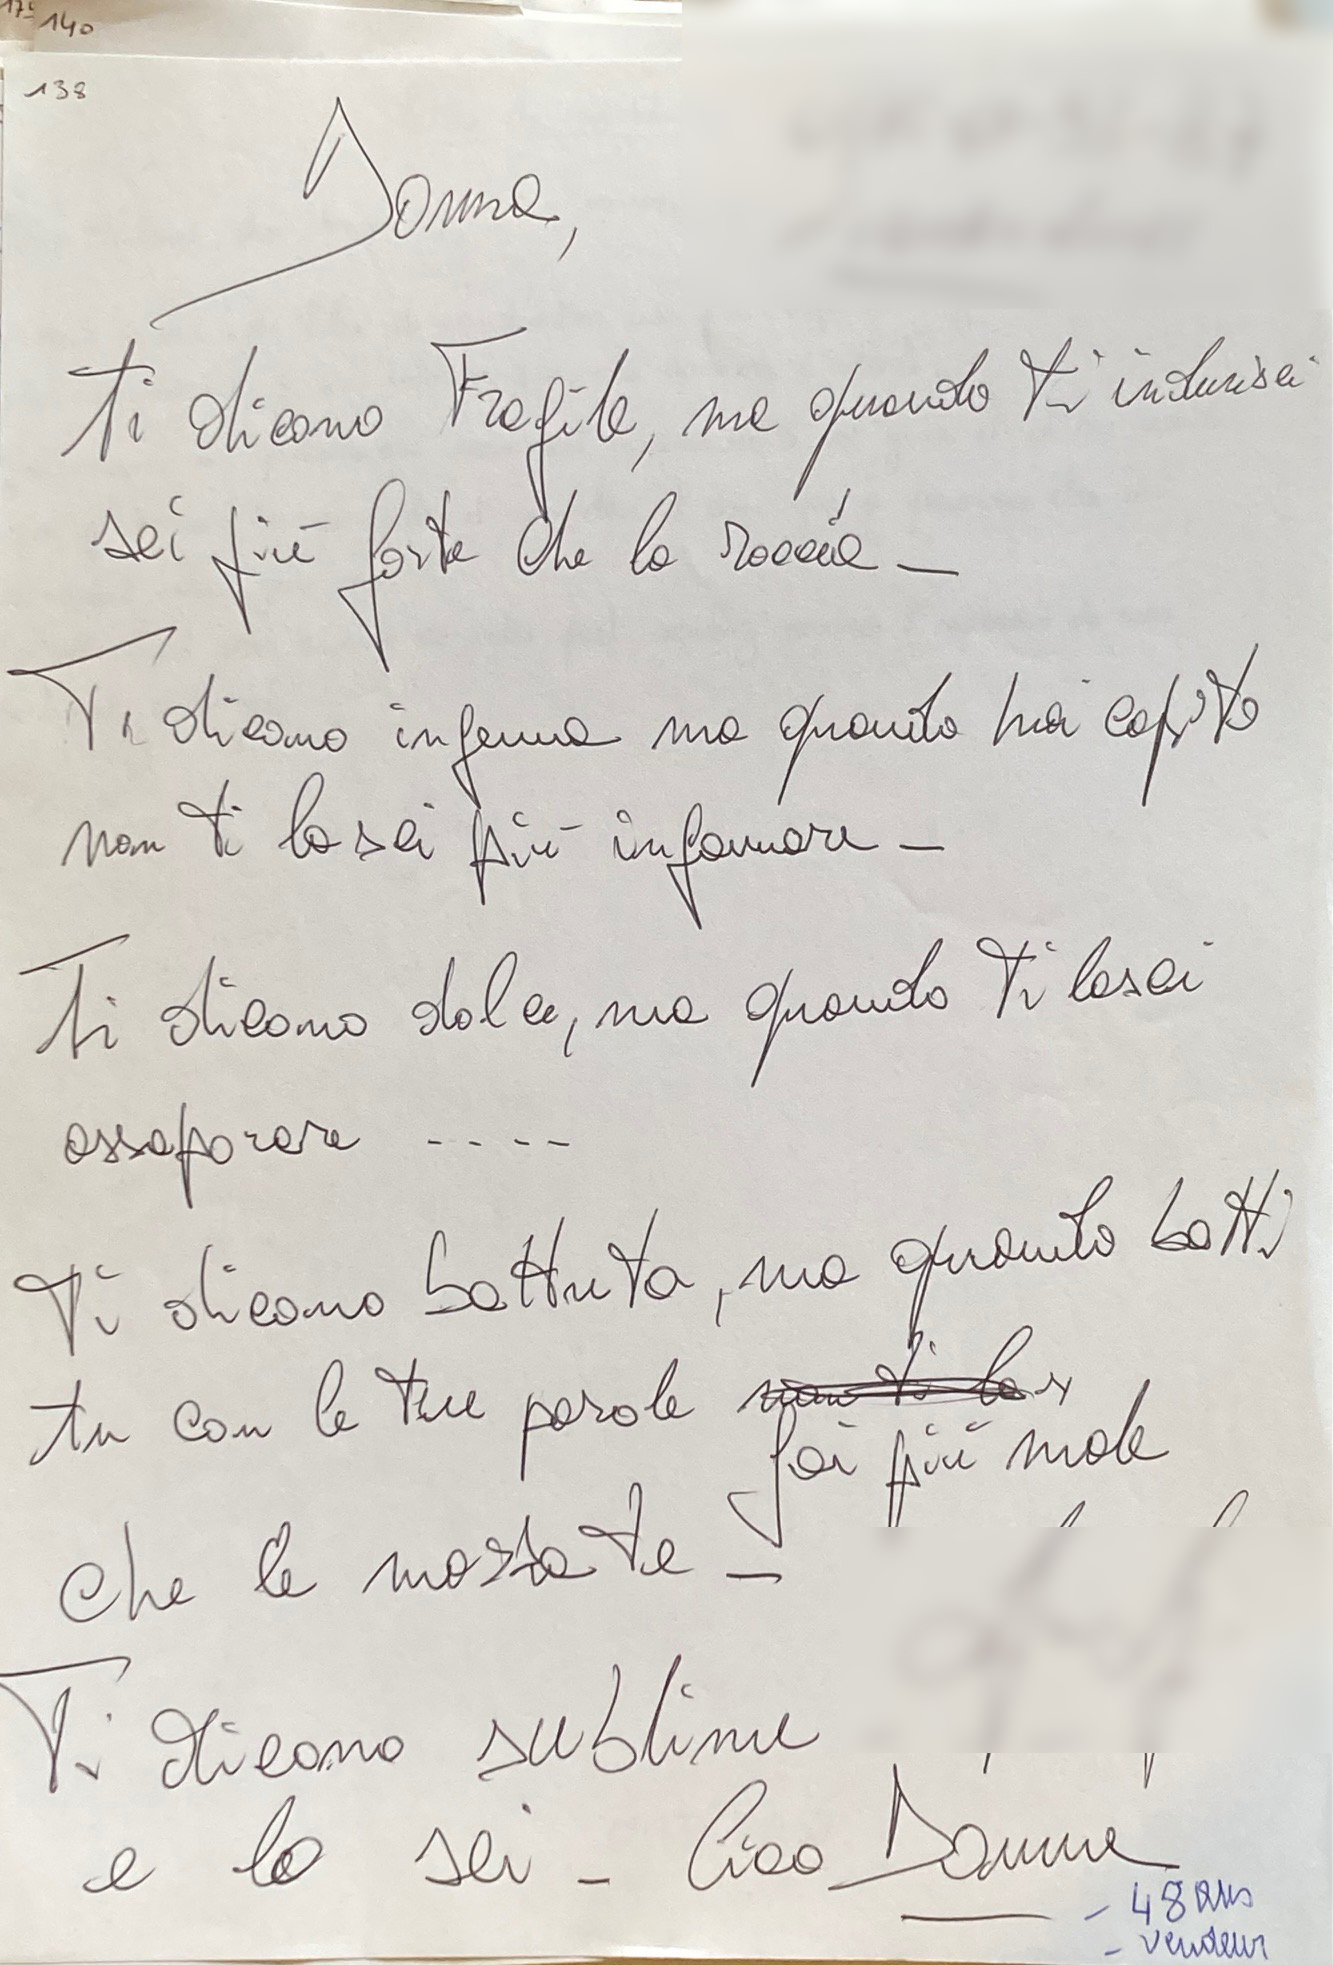 140
138
Donna,
Ti dicono Fragile, ma quando ti indurisci
sei più forte che la roccia -
Ti dicono ingenua ma quando hai capito
non ti lasci più ingannare -
Ti dicono dolce, ma quando ti lasci
assaporare ----
Ti dicono battuta, ma quando batti
tu con le tue parole
fai più male
che le mazzate -
Ti dicono sublime
e lo sei - Ciao Donna
- 48 ans
- vendeur